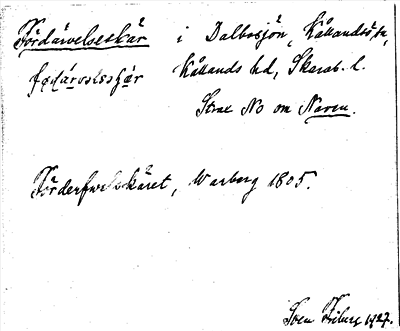 Fördärvelseskär i Dalbosjön, Kållandsö sn,
Kållands hd, Skarab. l.
Strax NO om Naven.
Förderfwelskäret, Warberg 1805.
Sven Friberg 1927.